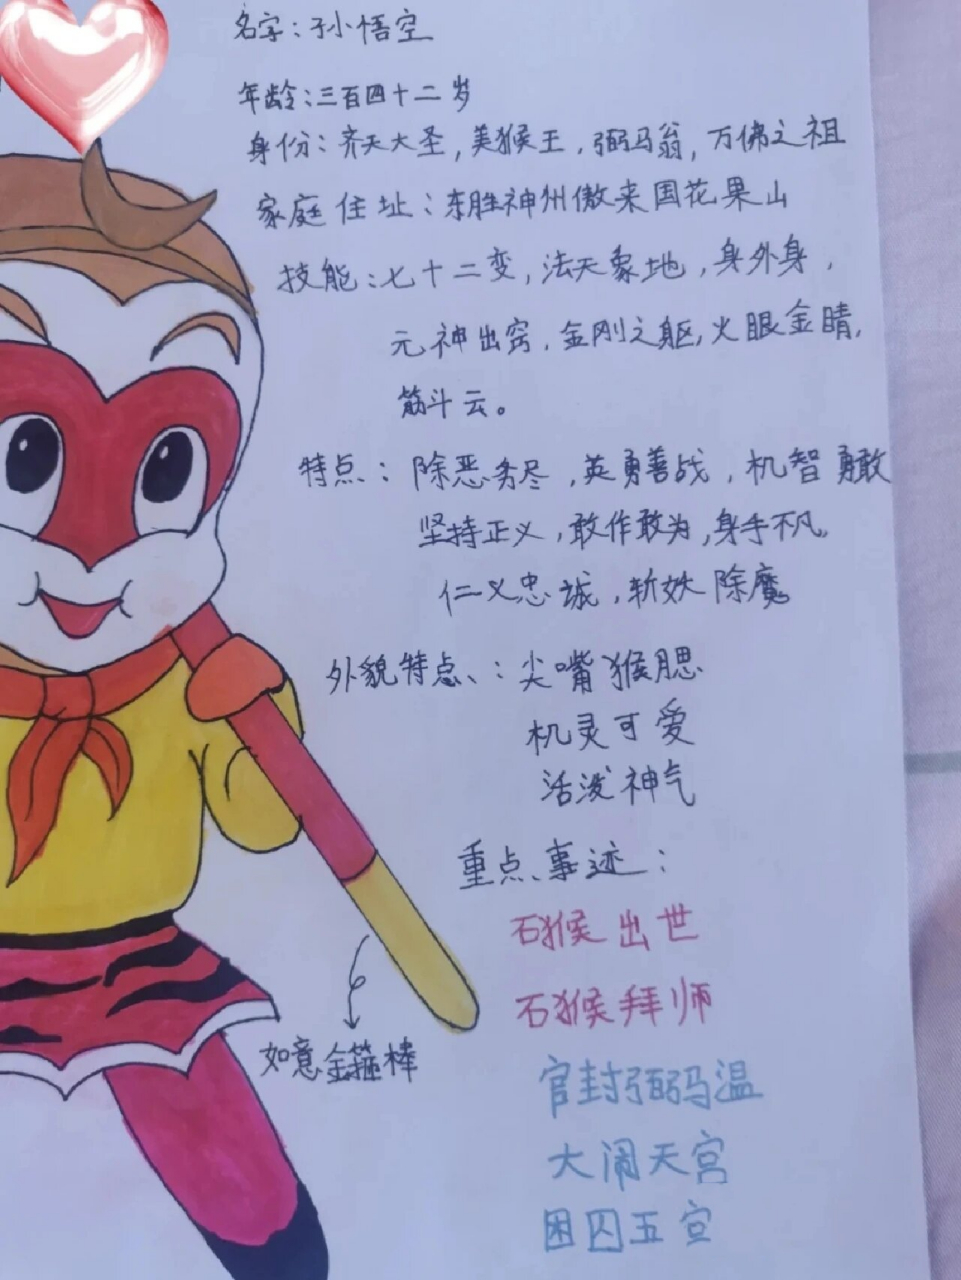 名字：孙悟空
年龄：三百四十二岁
身份：齐天大圣，美猴王，弼马翁，万佛之祖
家庭住址：东胜神州傲来国花果山
技能：七十二变，法天象地，身外身，
元神出窍，金刚之躯，火眼金睛，
筋斗云。
特点：除恶务尽，英勇善战，机智勇敢
坚持正义，敢作敢为，身手不凡。
仁义忠诚，斩妖除魔
外貌特点：尖嘴猴腮
机灵可爱
活泼神气
重点事迹：
石猴出世
石猴拜师
如意金箍棒
官封弼马温
大闹天宫
困囚五宣